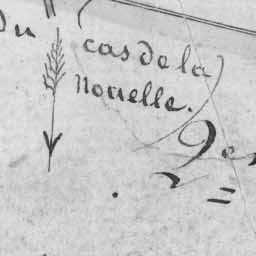 du
cas de la
Nouelle.